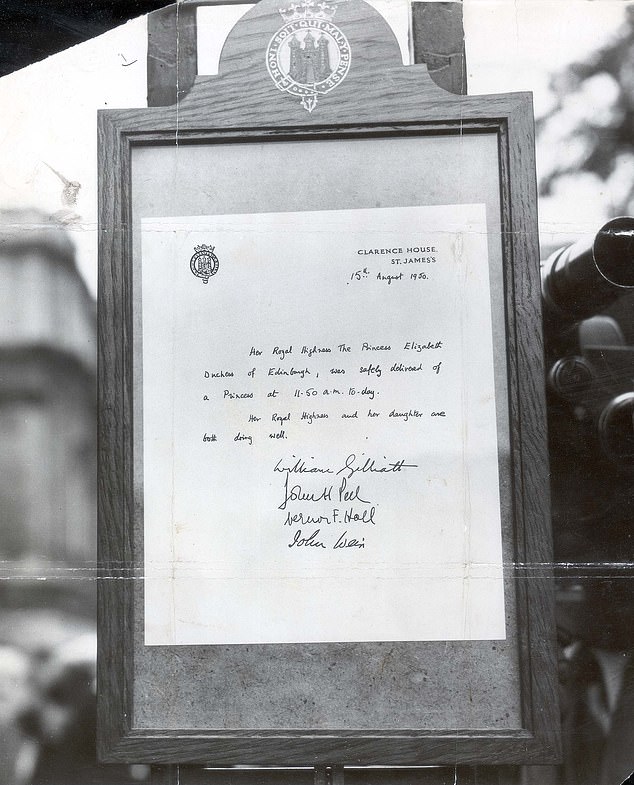 HONI·SOIT·QUI·MAL·Y·PENSE
CLARENCE HOUSE.
ST. JAMES'S
15th August 1950.
Her Royal Highness The Princess Elizabeth
Duchess of Edinburgh, was safely delivered of
a Princess at 11.50 a.m. to-day.
Her Royal Highness and her daughter are
both doing well.
William Gilliatt
John H Peel
Vernon F. Hall
John Weir